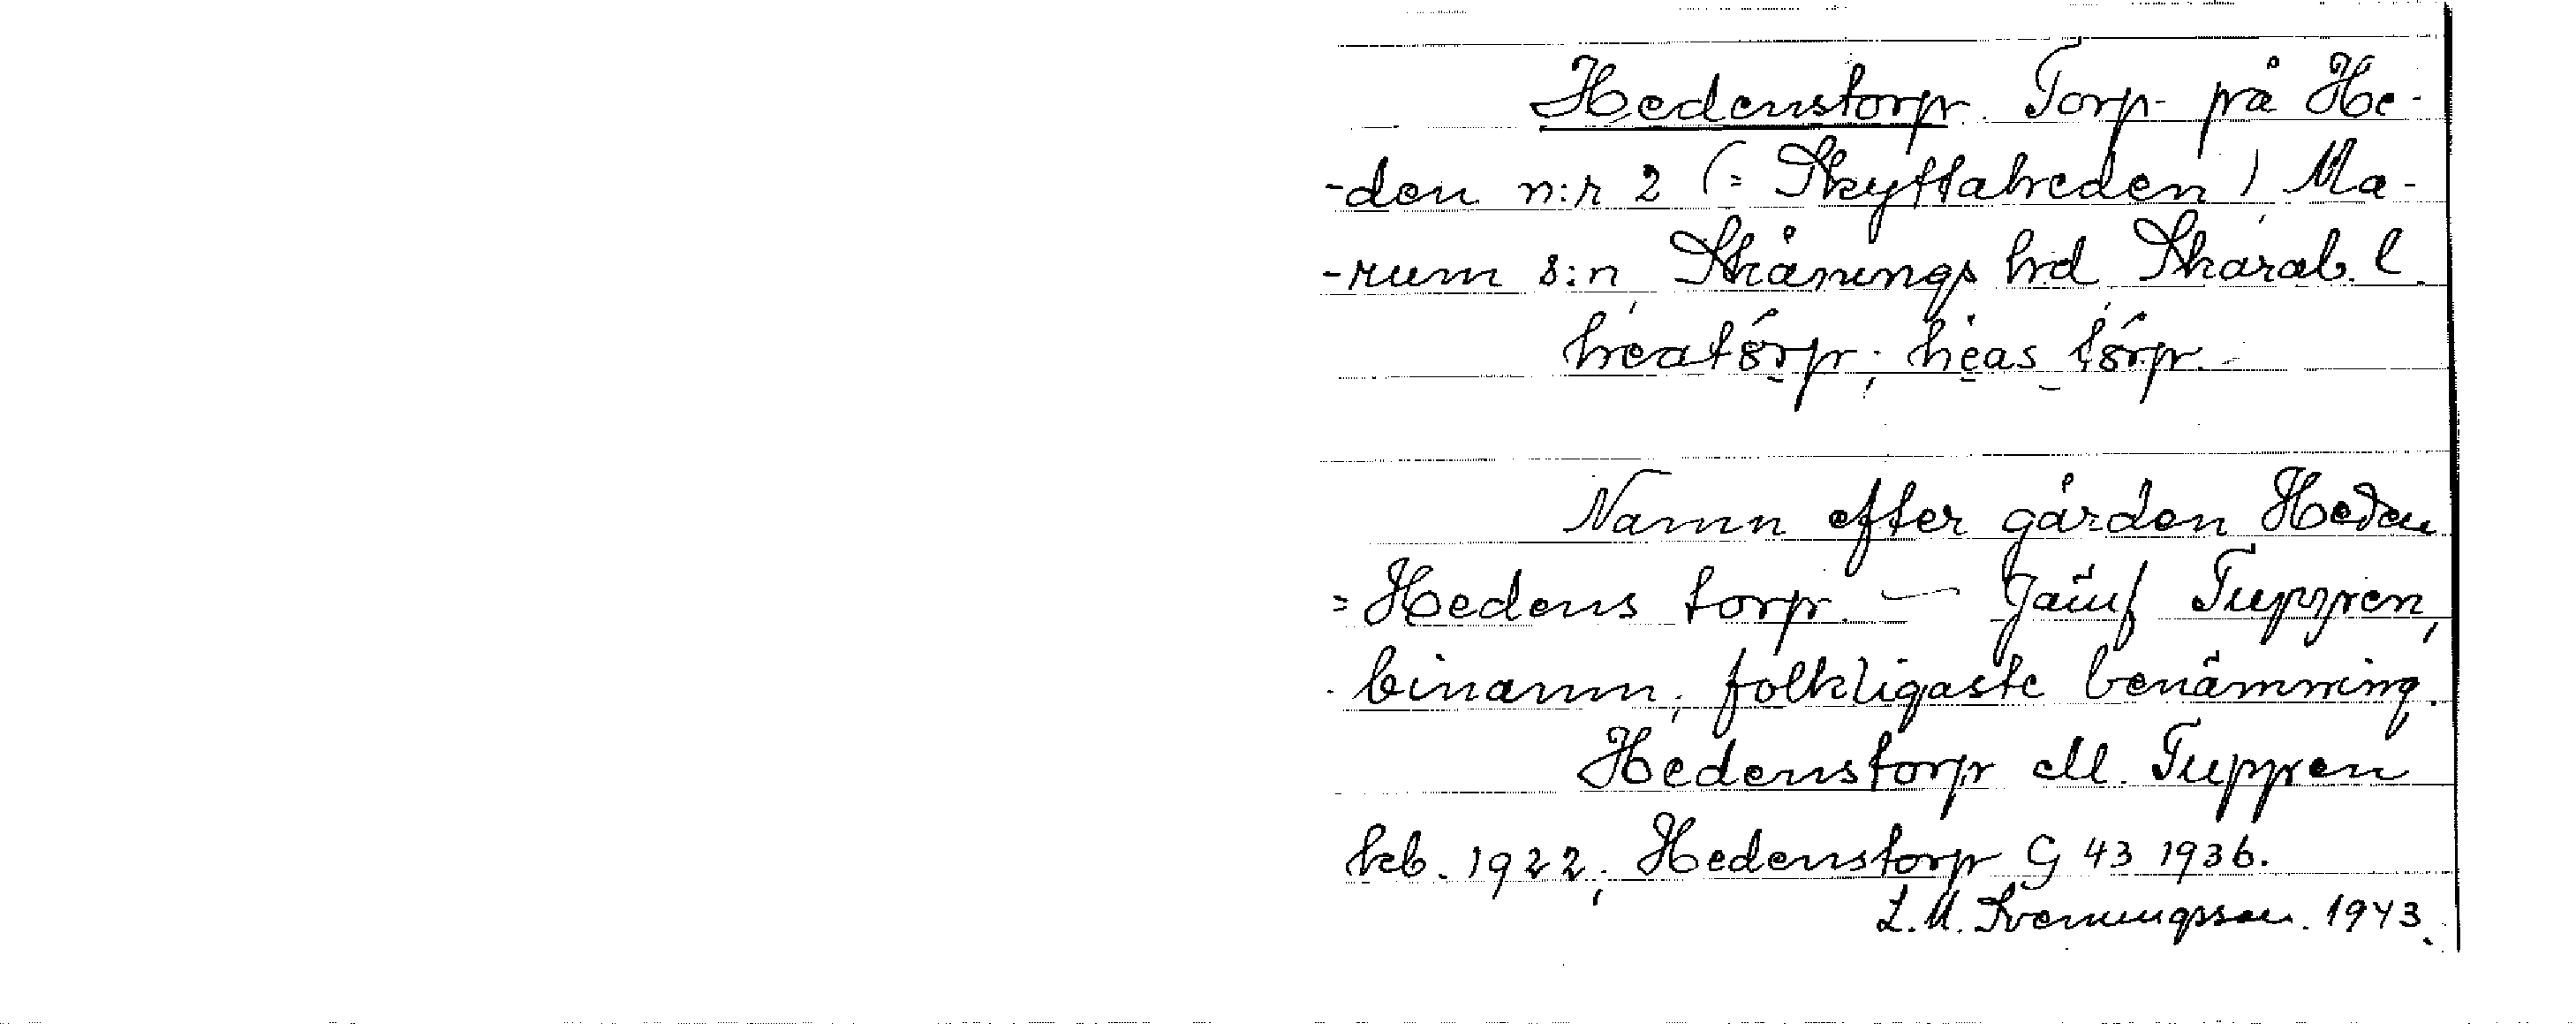 Hedenstorp. Torp på He-
-den n:r 2 (= Skyttaheden), Ma-
-rum s:n, Skånings hd, Skarab. l.
heatórp; heas tórp.
Namn efter gården Heden
= Hedens torp. — Jämf Tuppen,
binamn; folkligaste benämning.
Hedenstorp ell. Tuppen
kb. 1922; Hedenstorp G 43 1936.
L.M. Svenungsson. 1943.